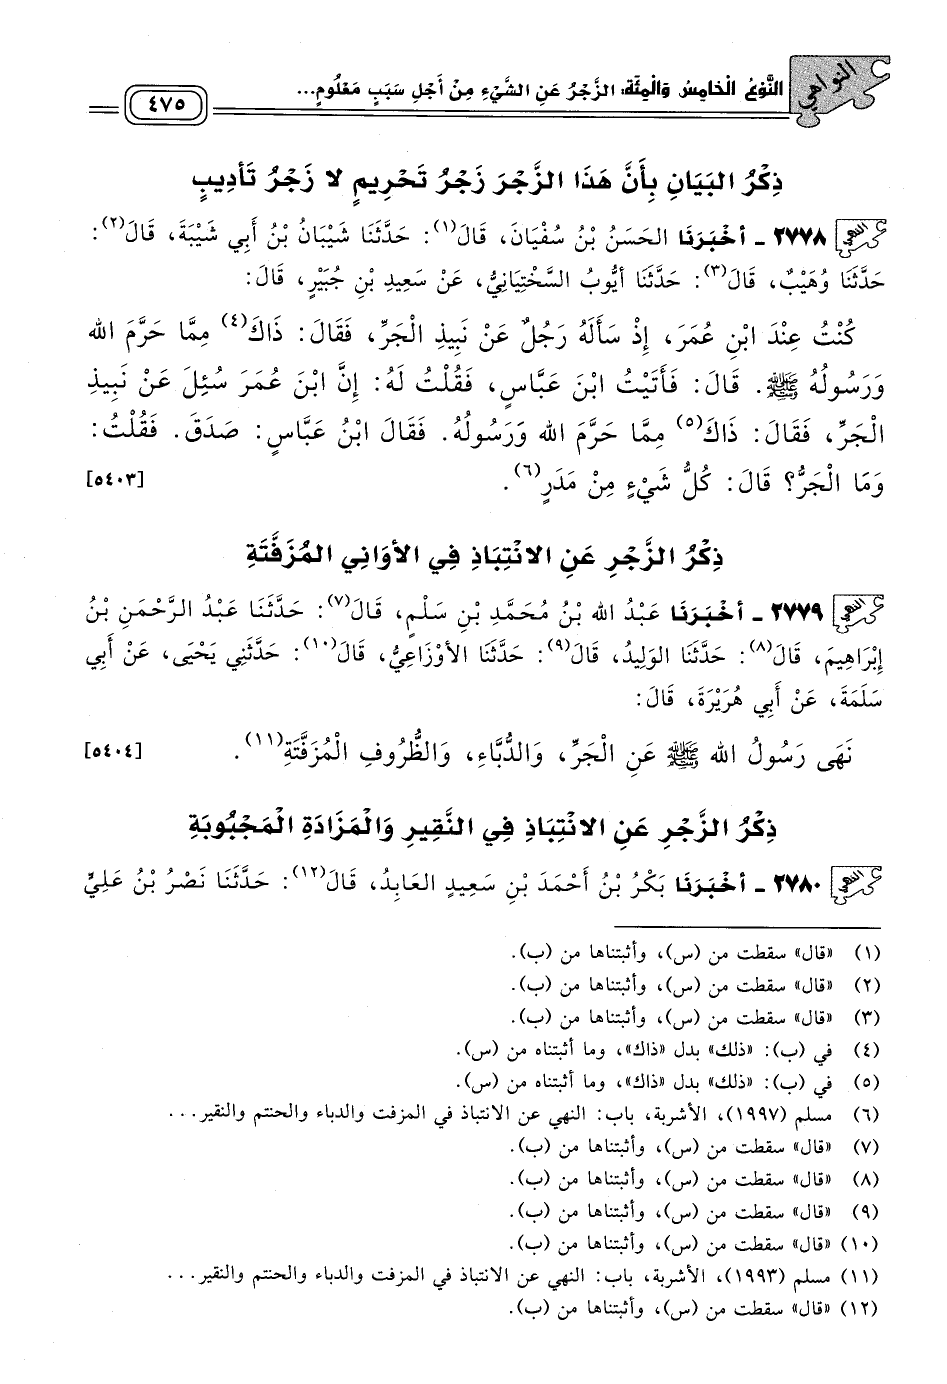 النواهي
النَّوْعُ الْخَامِسُ وَالْمِئَةُ: الزَّجْرُ عَنِ الشَّيْءِ مِنْ أَجْلِ سَبَبٍ مَعْلُومٍ...
٤٧٥
ذِكْرُ البَيَانِ بِأَنَّ هَذَا الزَّجْرَ زَجْرُ تَحْرِيمٍ لا زَجْرُ تَأْدِيبٍ
٢٧٧٨ ـ أَخْبَرَنَا الحَسَنُ بْنُ سُفْيَانَ، قَالَ(١): حَدَّثَنَا شَيْبَانُ بْنُ أَبِي شَيْبَةَ، قَالَ(٢):
حَدَّثَنَا وُهَيْبٌ، قَالَ(٣): حَدَّثَنَا أَيُّوبُ السَّخْتِيَانِيُّ، عَنْ سَعِيدِ بْنِ جُبَيْرٍ، قَالَ:
كُنْتُ عِنْدَ ابْنِ عُمَرَ، إِذْ سَأَلَهُ رَجُلٌ عَنْ نَبِيذِ الْجَرِّ، فَقَالَ: ذَاكَ(٤) مِمَّا حَرَّمَ الله
وَرَسُولُهُ ﷺ. قَالَ: فَأَتَيْتُ ابْنَ عَبَّاسٍ، فَقُلْتُ لَهُ: إِنَّ ابْنَ عُمَرَ سُئِلَ عَنْ نَبِيذِ
الْجَرِّ، فَقَالَ: ذَاكَ(٥) مِمَّا حَرَّمَ الله وَرَسُولُهُ. فَقَالَ ابْنُ عَبَّاسٍ: صَدَقَ. فَقُلْتُ:
وَمَا الْجَرُّ؟ قَالَ: كُلُّ شَيْءٍ مِنْ مَدَرٍ(٦). [٥٤٠٣]
ذِكْرُ الزَّجْرِ عَنِ الانْتِبَاذِ فِي الأَوَانِي المُزَفَّتَةِ
٢٧٧٩ ـ أَخْبَرَنَا عَبْدُ الله بْنُ مُحَمَّدِ بْنِ سَلْمٍ، قَالَ(٧): حَدَّثَنَا عَبْدُ الرَّحْمَنِ بْنُ
إِبْرَاهِيمَ، قَالَ(٨): حَدَّثَنَا الوَلِيدُ، قَالَ(٩): حَدَّثَنَا الأَوْزَاعِيُّ، قَالَ(١٠): حَدَّثَنِي يَحْيَى، عَنْ أَبِي
سَلَمَةَ، عَنْ أَبِي هُرَيْرَةَ، قَالَ:
نَهَى رَسُولُ الله ﷺ عَنِ الْجَرِّ، وَالدُّبَّاءِ، وَالظُّرُوفِ الْمُزَفَّتَةِ(١١). [٥٤٠٤]
ذِكْرُ الزَّجْرِ عَنِ الانْتِبَاذِ فِي النَّقِيرِ وَالْمَزَادَةِ الْمَجْبُوبَةِ
٢٧٨٠ ـ أَخْبَرَنَا بَكْرُ بْنُ أَحْمَدَ بْنِ سَعِيدٍ العَابِدُ، قَالَ(١٢): حَدَّثَنَا نَصْرُ بْنُ عَلِيٍّ
(١) «قال» سقطت من (س)، وأثبتناها من (ب).
(٢) «قال» سقطت من (س)، وأثبتناها من (ب).
(٣) «قال» سقطت من (س)، وأثبتناها من (ب).
(٤) في (ب): «ذلك» بدل «ذاك»، وما أثبتناه من (س).
(٥) في (ب): «ذلك» بدل «ذاك»، وما أثبتناه من (س).
(٦) مسلم (١٩٩٧)، الأشربة، باب: النهي عن الانتباذ في المزفت والدباء والحنتم والنقير...
(٧) «قال» سقطت من (س)، وأثبتناها من (ب).
(٨) «قال» سقطت من (س)، وأثبتناها من (ب).
(٩) «قال» سقطت من (س)، وأثبتناها من (ب).
(١٠) «قال» سقطت من (س)، وأثبتناها من (ب).
(١١) مسلم (١٩٩٣)، الأشربة، باب: النهي عن الانتباذ في المزفت والدباء والحنتم والنقير...
(١٢) «قال» سقطت من (س)، وأثبتناها من (ب).